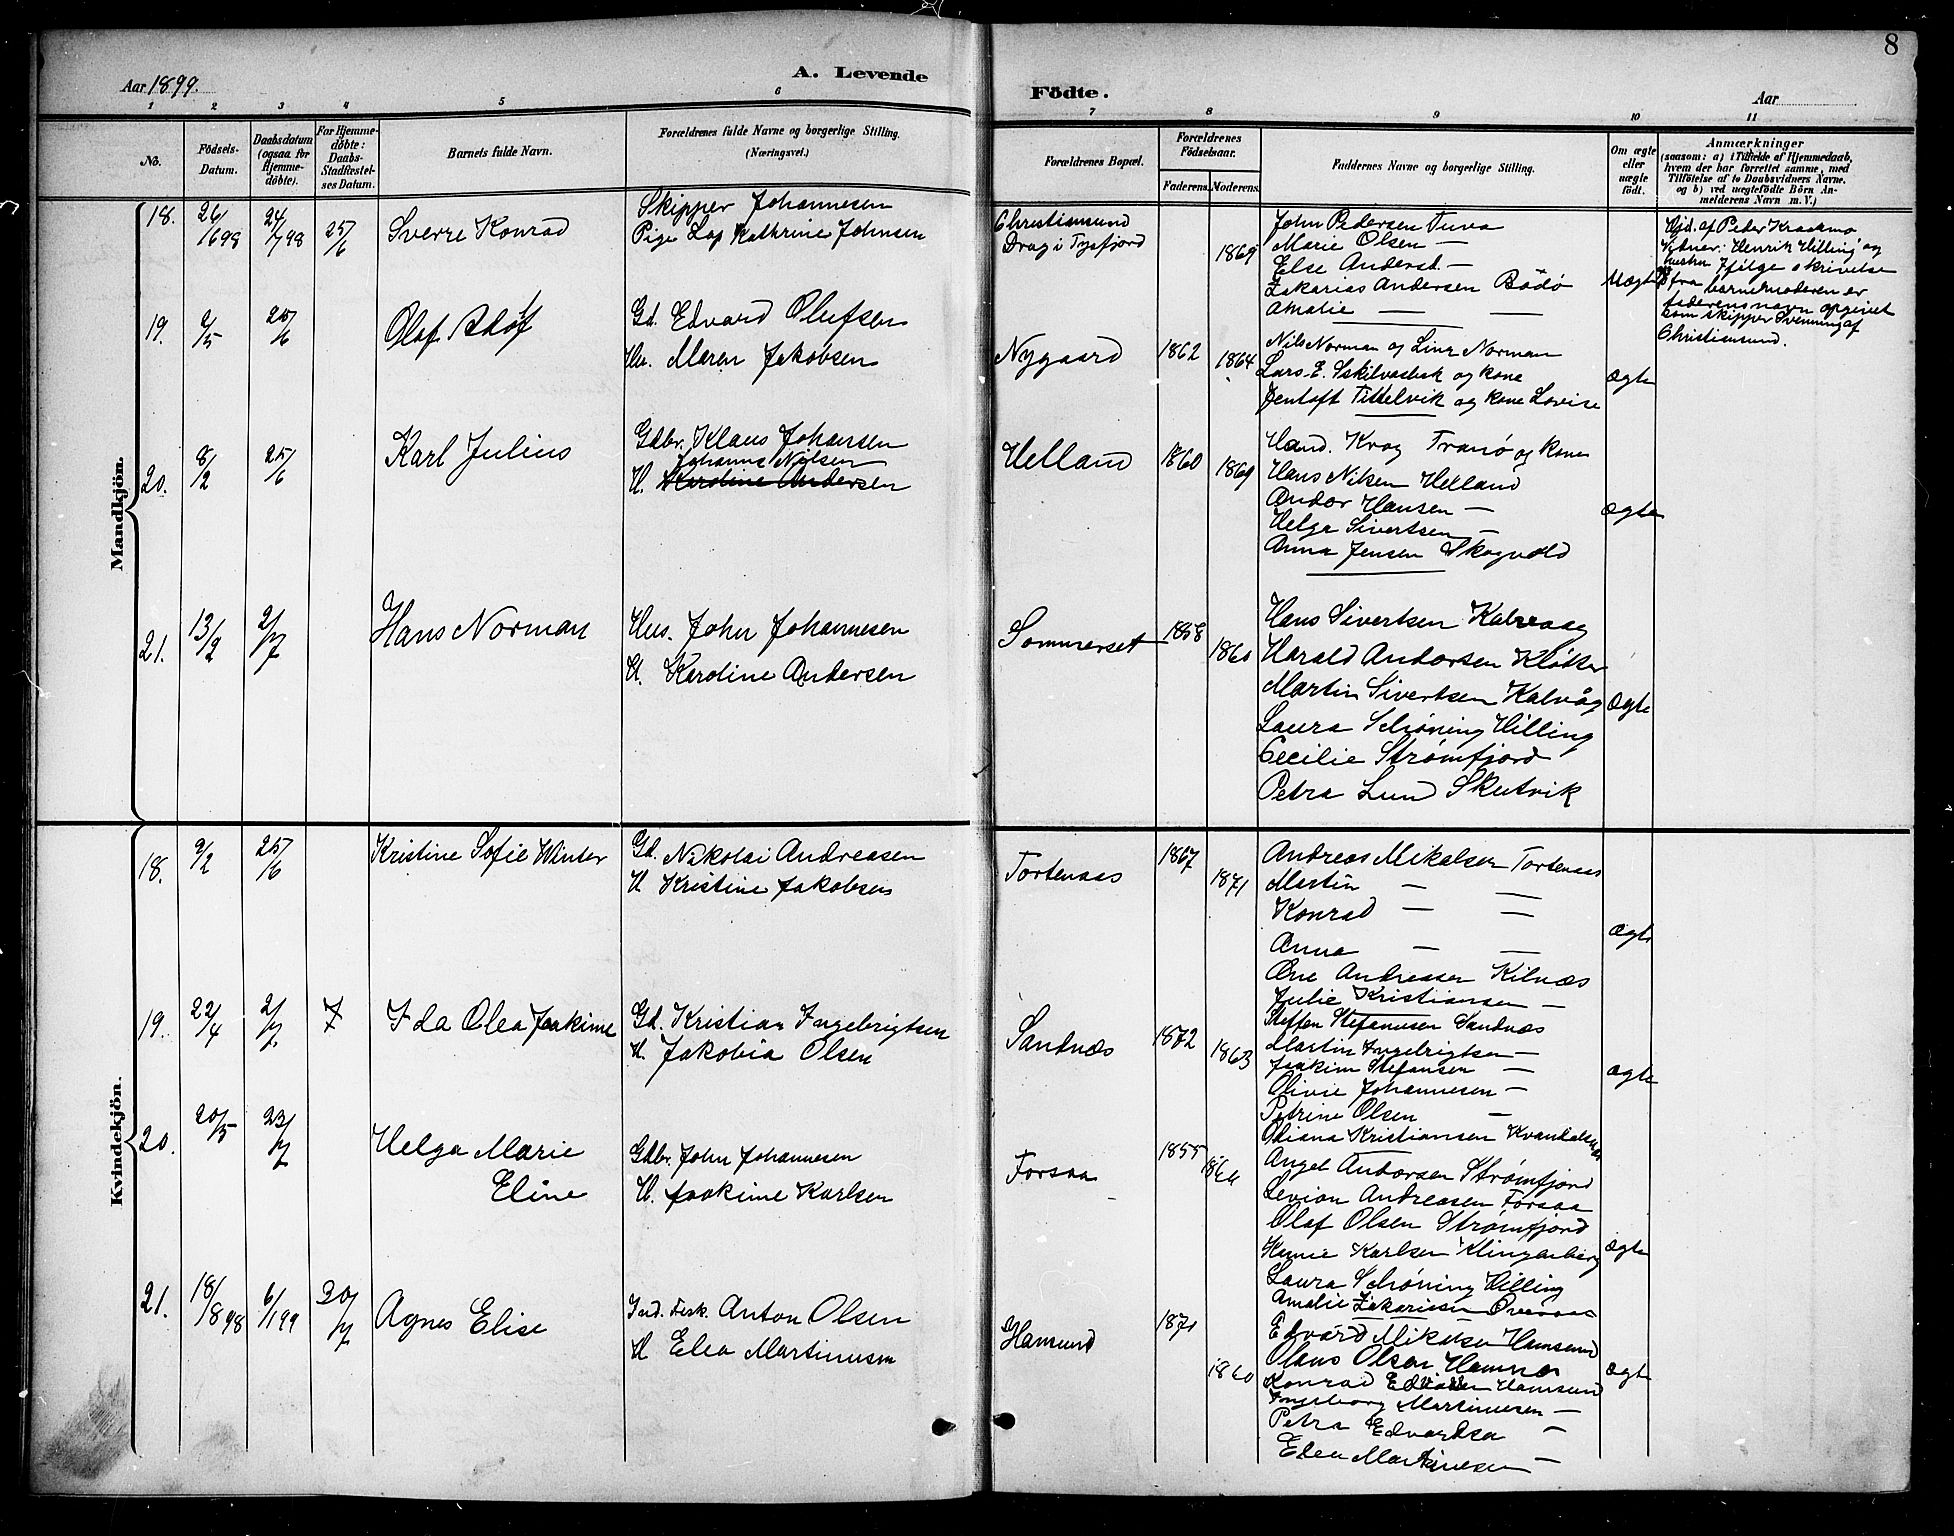 8
Aar 1899.
A. Levende
Födte.
Aar
1 2 3 4 5 6 7 8 9 10 11
No.
Födsels-
Datum.
Daabsdatum
(ogsaa for
Hjemme-
döbte).
For Hjemme-
döbte:
Daabs-
Stadfæstel-
ses Datum.
Barnets fulde Navn.
Forældrenes fulde Navne og borgerlige Stilling.
(Næringsvei.)
Forældrenes Bopæl.
Forældrenes
Födselsaar.
Faderens. Moderens.
Faddernes Navne og borgerlige Stilling.
Om ægte
eller
uægte
födt.
Anmærkninger
(saasom: a) i Tilfælde af Hjemmedaab,
hvem der har forrettet samme, med
Tilföielse af to Daabsvidners Navne,
og b) ved uegtefödte Börn An-
melderens Navn m. V.)
Mandkjön.
18. 26/6 98 24/7 98 25/6 Sverre Konrad
Skipper Johannesen
Pige Lap Kathrine Johnsen
Christiansund
Drag i Tysfjord
1869
John Pedersen Tuva
Marie Olsen —
Else Andersd. —
Zakarias Andersen Bödö
Amalie — —
Uægte
Hjd. af Peder Kraamo
Vidner: Henrik Hilling og
hustru Ifölge skrivelse
fra barnemoderen er
faderens navn opgivet
som skipper Svenning af
Christiansund.
19. 2/5 25/6 Olaf Adolf
Gd. Edvard Olufsen
Hu. Maren Jakobsen
Nygaard 1862 1864
Nils Norman og Lina Norman
Lars E. Skilvasbak og kone
Jentoft Tittelvik og kone Lovise
ægte
20. 8/2 25/6 Karl Julius
Gdbr. Klaus Johansen
Johanna Nilsen
H. Karoline Andersen
Helland 1860 1869
Hand. Krog Tranö og kone
Hans Nilsen Helland
Andor Hansen —
Helga Sivertsen —
Anna Jensen Skogvold
ægte
21. 13/2 2/7 Hans Norman
Hus. John Johannesen
H. Karoline Andersen
Sommerset 1858 1860
Hans Sivertsen Kalvaag
Harald Andorsen Kløkser
Martin Sivertsen Kalvåg
Laura Schöning Hilling
Cecilie Strømfjord
Petra Lund Skutvik
Ægte
Kvindekjön.
18. 9/2 25/6 Kristine Sofie Winter
Gd. Nikolai Andreasen
H Kristine Jakobsen
Tortenaas 1867 1871
Andreas Mikalsen Tortenaas
Martin — —
Konrad — —
Anna — —
Ane Andreasen Kilnæs
Julie Kristiansen —
Ægte
19. 22/4 2/7 Ida Olea Joakime
Gd. Kristian Ingebrigtsen
H. Jakobia Olsen
Sandnæs 1872 1863
Steffen Stefanusen Sandnæs
Martin Ingebrigtsen —
Joakim Stefansen —
Olivie Johannesen —
Petrine Olsen —
Odiana Kristiansen Kvandalsnes
ægte
20. 20/5 23/7 Helga Marie
Eline
Gdbr. John Johannesen
H. Joakime Karlsen
Forsaa 1855
Angel Andorsen Strømfjord
Levion Andreasen Forsaa
Olaf Olsen Strømfjord
Karlsen Klingenberg
Laura Schöning Hilling
Amalie Zakariasen
Ægte
21. 18/8 98 6/1 99 30/7 Agnes Elise
Ind. Fisk. Anton Olsen
H Elea Martinusen
Hamsund 1871 1860
Edvard Mikalsen Hamsund
Olaus Olsen Hamnæs
Konrad Edvardsen Hamsund
Ingeborg Martinusen —
Petra Edvardsen —
Elea Martinusen —
ægte